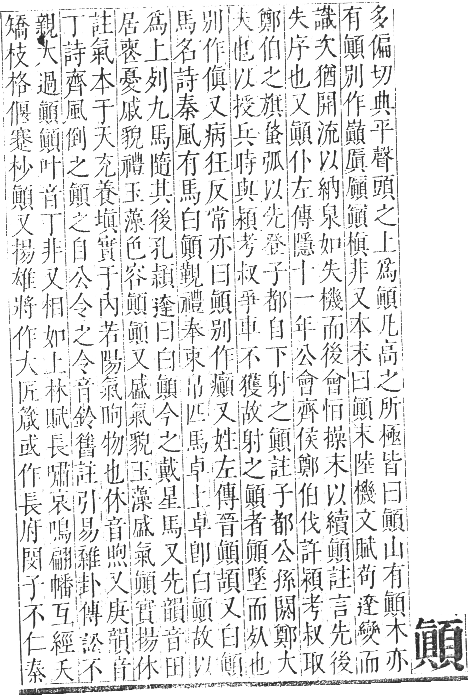 顚
多偏切典平聲頭之上爲顚凡高之所極皆曰顚山有顚木亦
有顚別作巔厧顚顚槙非又本末曰顚末陸機文賦茍達變而
識次猶開流以納泉如失機而後會恒操末以續顚註言先後
失序也又顚仆左傳隱十一年公會齊侯鄭伯伐許潁考叔取
鄭伯之旗蝥弧以先登子都自下射之顚註子都公孫閼鄭大
夫也以授兵時與潁考叔爭車不獲故射之顚者顚墜而死也
別作傎又病狂反常亦曰顚別作癲又姓左傳晉顚頡又白顚
馬名詩秦風有馬白顚覲禮奉束帛匹馬卓上卓卽白顚故以
爲上列九馬隨其後孔穎達曰白顚今之戴星馬又先韻音田
居喪憂戚貌禮玉藻色容顚顚又盛氣貌玉藻盛氣顚實揚休
註氣本于天充養塡實于內若陽氣昫物也休音煦又庚韻音
丁詩齊風倒之顚之自公令之令音鈴舊註引易雜卦傳訟不
親大過顚顚叶音丁非又相如上林賦長嘯哀鳴翩幡互經夭
矯枝格偃蹇杪顚又揚雄將作大匠箴或作長府閔子不仁秦